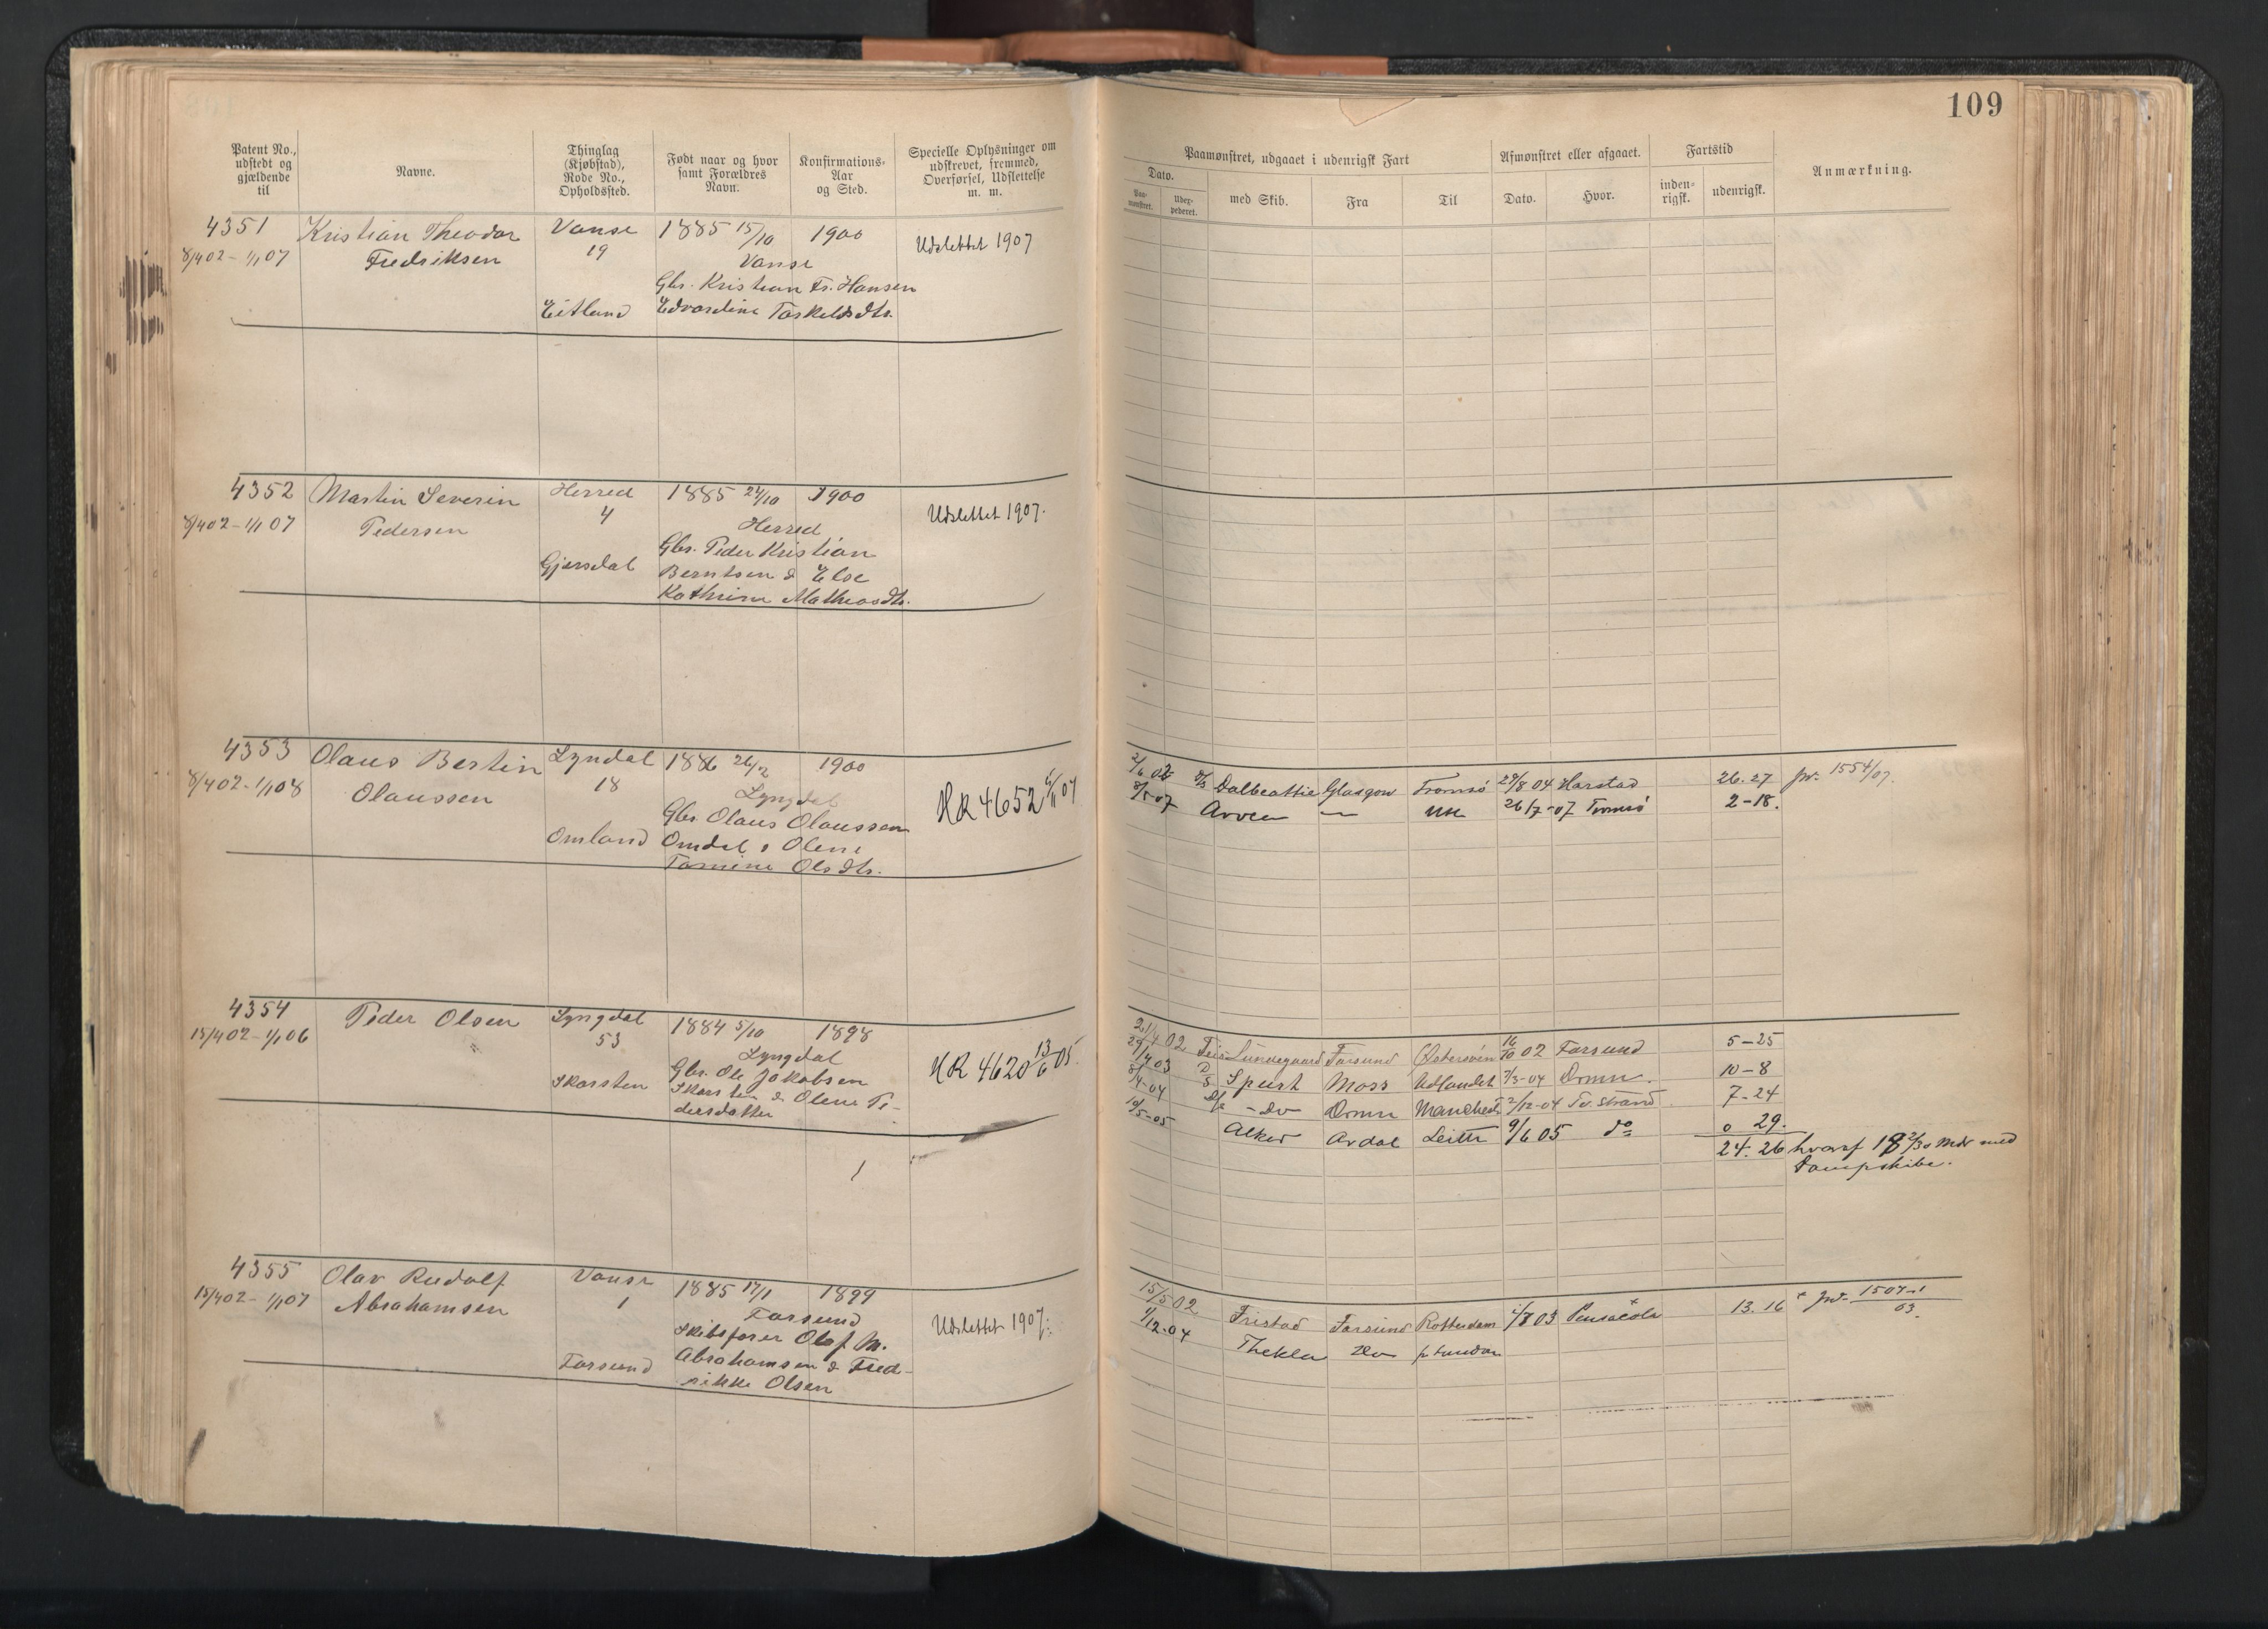 109
Patent No., udstedt og gjældende til
Navne.
Thinglag (Kjøbstad), Rode No., Opholdssted.
Født naar og hvor samt Forældres Navn.
Konfirmations-Aar og Sted.
Specielle Oplysninger om udskrevet, fremmed, Overførsel, Udslettelse m. m.
Paamønstret, udgaaet i udenrigsk Fart
Afmønstret eller afgaaet.
Fartstid
Anmærkning.
Dato.
Paa-mønstret.
Udex-pederet.
med Skib.
Fra
Til
Dato.
Hvor.
inden-rigsk.
udenrigsk.
4351 Kristian Theodor Vanse 1885 15/10 1900 Udslettet 1907
8/4 02 - 1/1 07 Fredriksen 19 Vanse
Gbr. Kristian Fr. Hansen
Eitland Edvardine Torkeldsdtr.
4352 Martin Severin Herred 1885 24/10 1900 Udslettet 1907.
8/4 02 - 1/1 07 Pedersen 4 Herred
Gbr. Peder Kristian
Gjersdal Berntsen & Else
Kathrine Mathiasdtr.
4353 Olaus Bertin Lyngdal 1886 26/2 1900
8/4 02 - 1/1 08 Olaussen 18 Lyngdal HR 4652 6/11 07
Gbr. Olaus Olaussen
Omland Omdal & Olene
Tomine Olsdtr.
2/6 02 Dalbeattie Glasgow Tromsö 29/8 04 Harstad 26.27 jvr. 1554/07.
8/5 07 Arven — 26/7-07 Tromsö 2-18.
4354 Peder Olsen Lyngdal 1884 5/10 1898
15/4 02 - 1/1 06 53 Lyngdal HR 4620 13/6 05
Gbr. Ole Jakobsen
Skarsten Skarsten & Olene Pe-
dersdatter
21/4 02 Lundegaard Farsund Östersöen 16/10 02 Farsund 5-25
29/4 03 D/S Spurt Moss Udlandet 7/3-04 Drmn. 10-8
8/4-04 -do Drmn Manchest. 2/12-04 Tv.strand 7-24
10/5-05 Alker Ardal Leith 9/6 05 do 0 29.
24.26 hvoraf 18 2/30 Mdr med
Dampskibe.
4355 Olav Rudolf Vanse 1885 17/1 1899
15/4 02 - 1/1 07 Abrahamsen 1 Farsund Udslettet 1907.
Skibsfører Olaf M.
Farsund Abrahamsen & Fred-
rikke Olsen
15/5 02 Fristad Farsund Rotterdam 1/8 03 Pensacola 13.16 jvr. 1507/03.
1/12.04 Thekla do